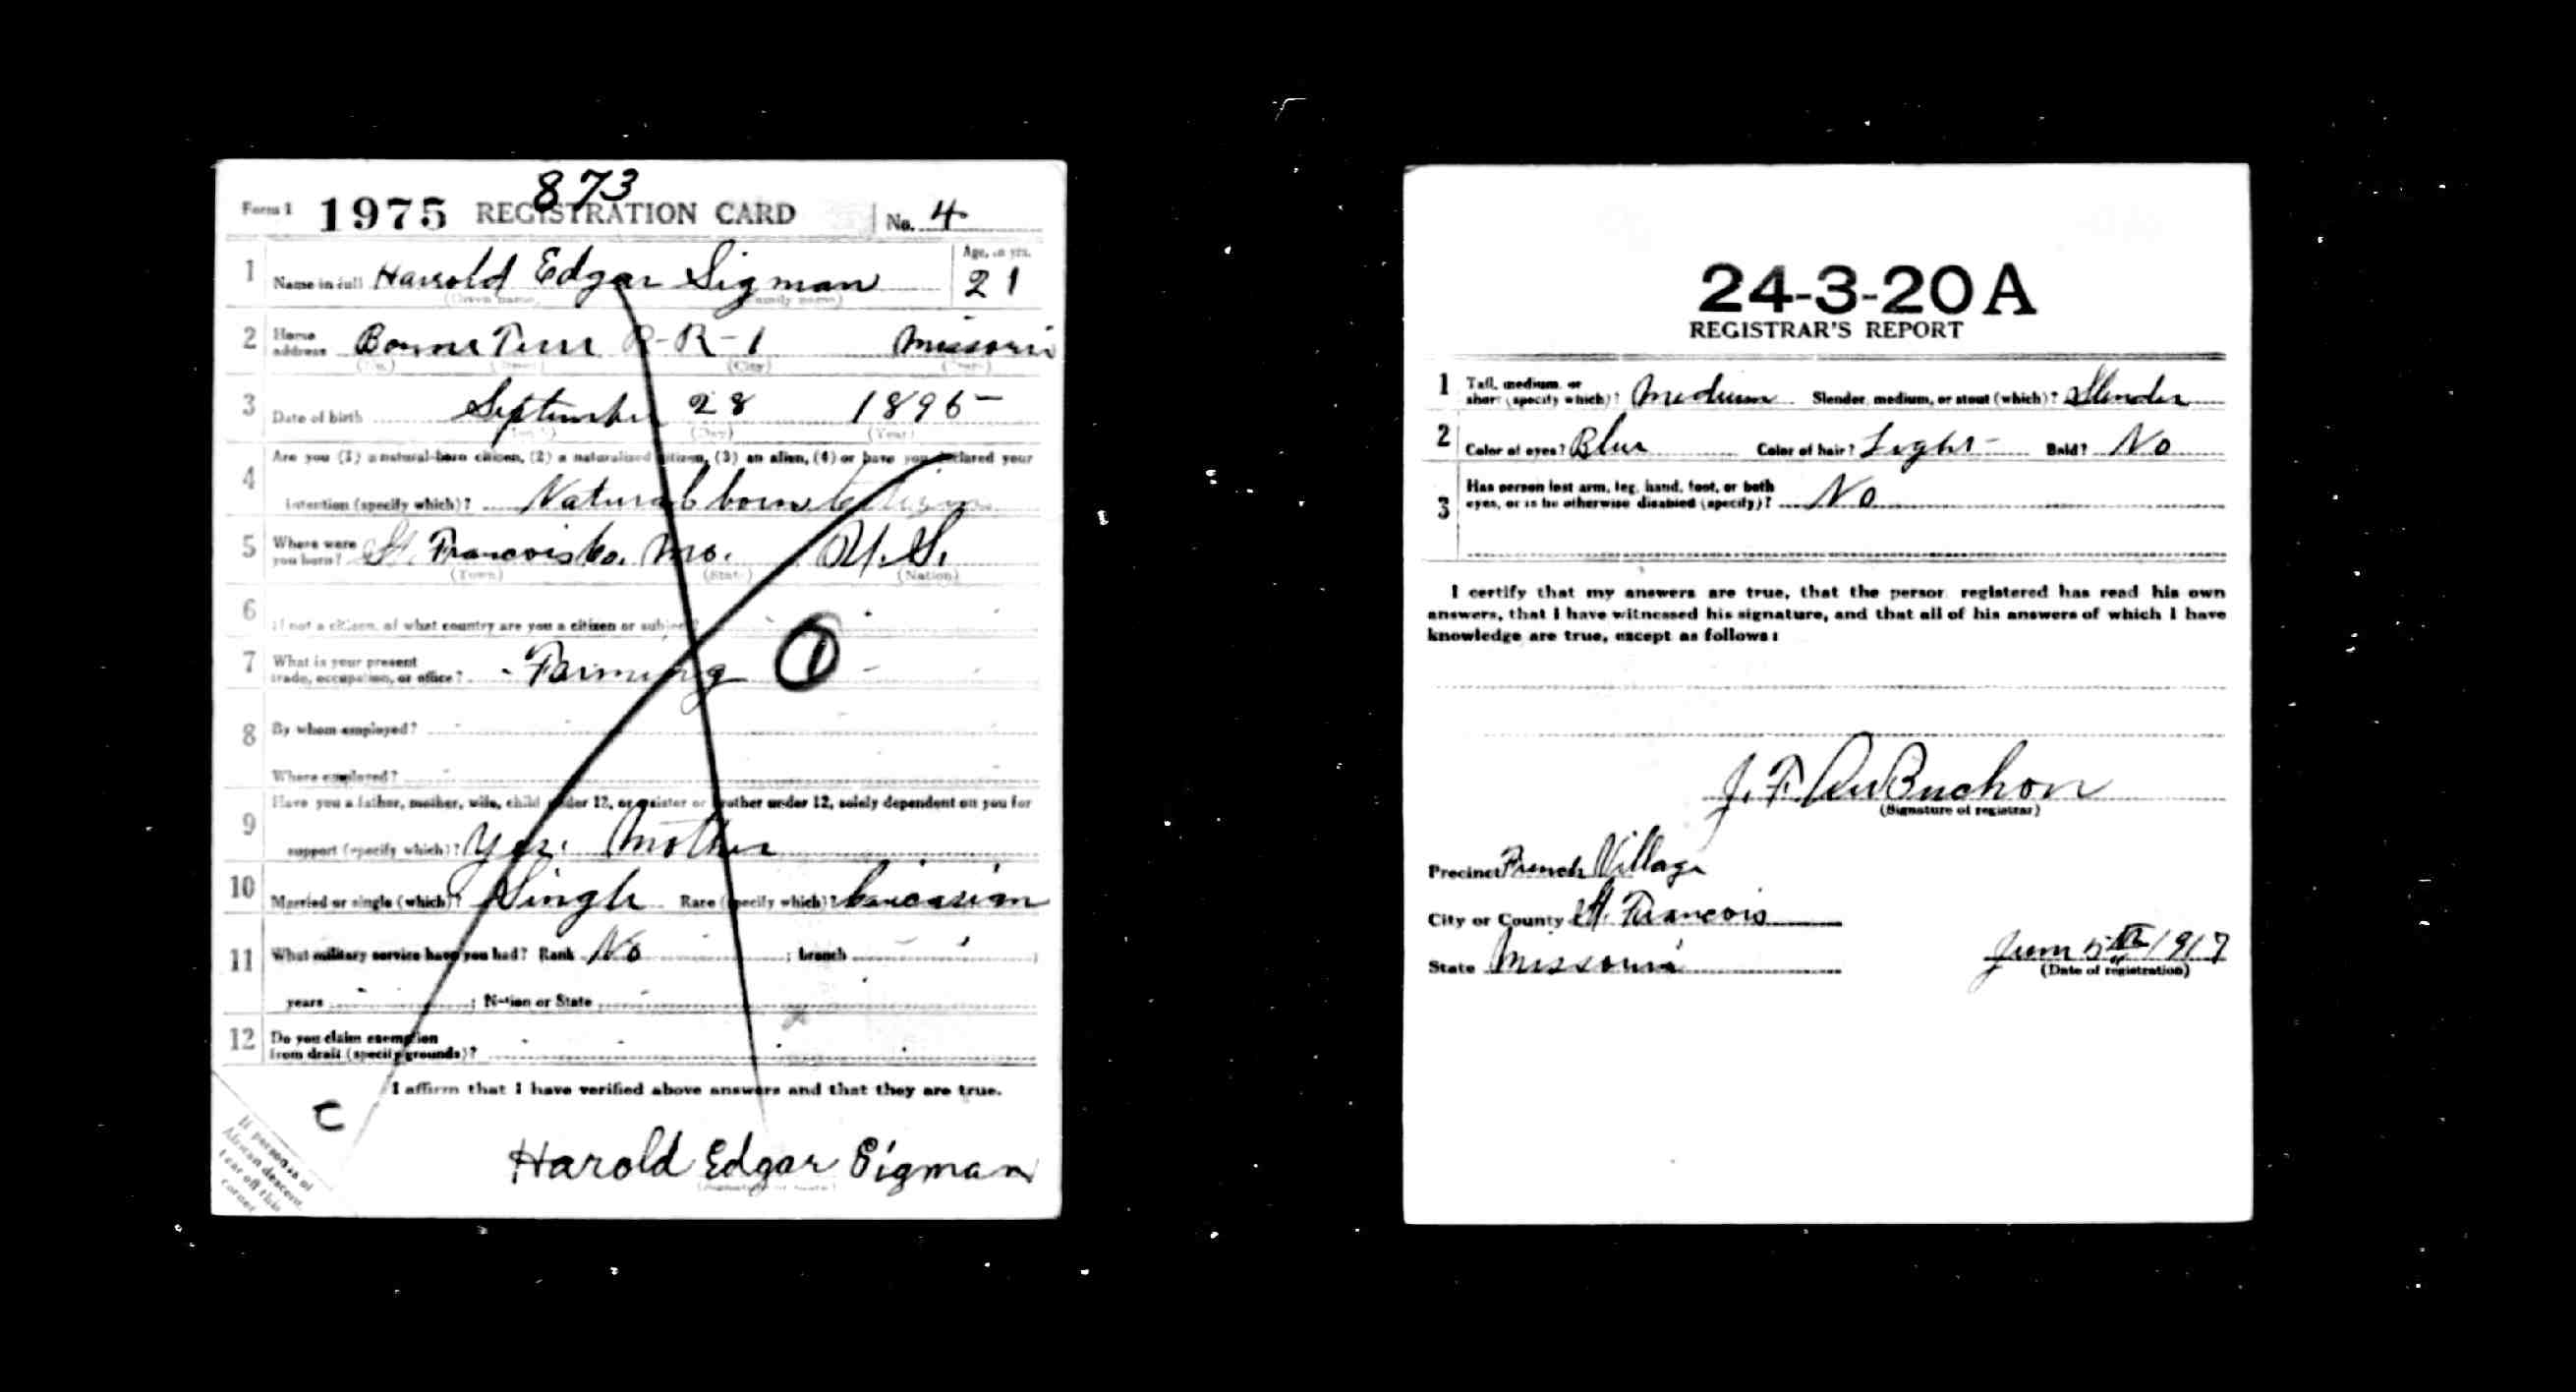 873
Form 1 1975 REGISTRATION CARD No. 4
1 Name in full Harrold Edgar Sigman Age, in yrs. 21
(Given name) (Family name)
2 Home address Bonne Terre R-R-1 Missouri
(No.) (Street) (City) (State)
3 Date of birth September 28 1895
(Month) (Day) (Year)
4 Are you (1) a natural-born citizen, (2) a naturalized citizen, (3) an alien, (4) or have you declared your
intention (specify which)? Natural born Citizen
5 Where were you born? St. Francois Co. Mo. U.S.
(Town) (State) (Nation)
6 If not a citizen, of what country are you a citizen or subject?
7 What is your present trade, occupation, or office? Farming 1
8 By whom employed?
Where employed?
9 Have you a father, mother, wife, child under 12, or a sister or brother under 12, solely dependent on you for
support (specify which)? Yes. Mother
10 Married or single (which)? Single Race (specify which)? Caucasian
11 What military service have you had? Rank No ; branch
years ; Nation or State
12 Do you claim exemption from draft (specify grounds)?
I affirm that I have verified above answers and that they are true.
C
If person is of African descent, tear off this corner
Harold Edgar Sigman
24-3-20 A
REGISTRAR'S REPORT
1 Tall, medium, or short (specify which)? Medium Slender, medium, or stout (which)? Slender
2 Color of eyes? Blue Color of hair? Light Bald? No
3 Has person lost arm, leg, hand, foot, or both eyes, or is he otherwise disabled (specify)? No
I certify that my answers are true, that the person registered has read his own
answers, that I have witnessed his signature, and that all of his answers of which I have
knowledge are true, except as follows:
J. F. AuBuchon
(Signature of registrar)
Precinct French Village
City or County St. Francois
State Missouri
June 5th 1917
(Date of registration)